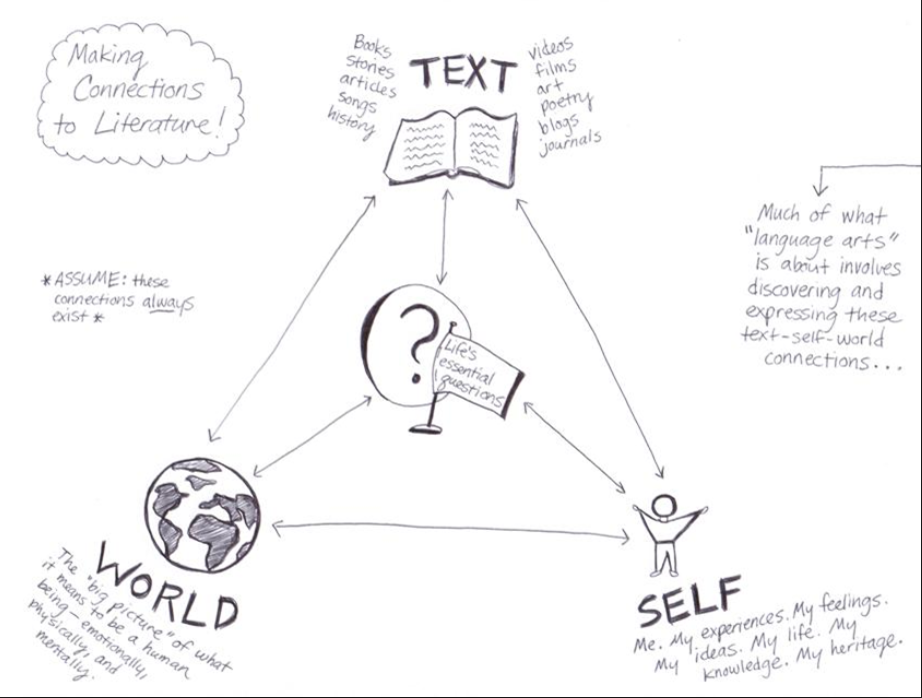 Making
Connections
to Literature!
Books
stories
articles
songs
history
TEXT
videos
films
art
poetry
blogs
journals
Much of what
"language arts"
is about involves
discovering and
expressing these
text-self-world
connections...
*ASSUME: these
connections always
exist*
?
Life's
essential
questions
WORLD
The "big picture" of what
it means to be a human
being - emotionally,
physically, and
mentally.
SELF
Me. My experiences. My feelings.
My ideas. My life. My
knowledge. My heritage.